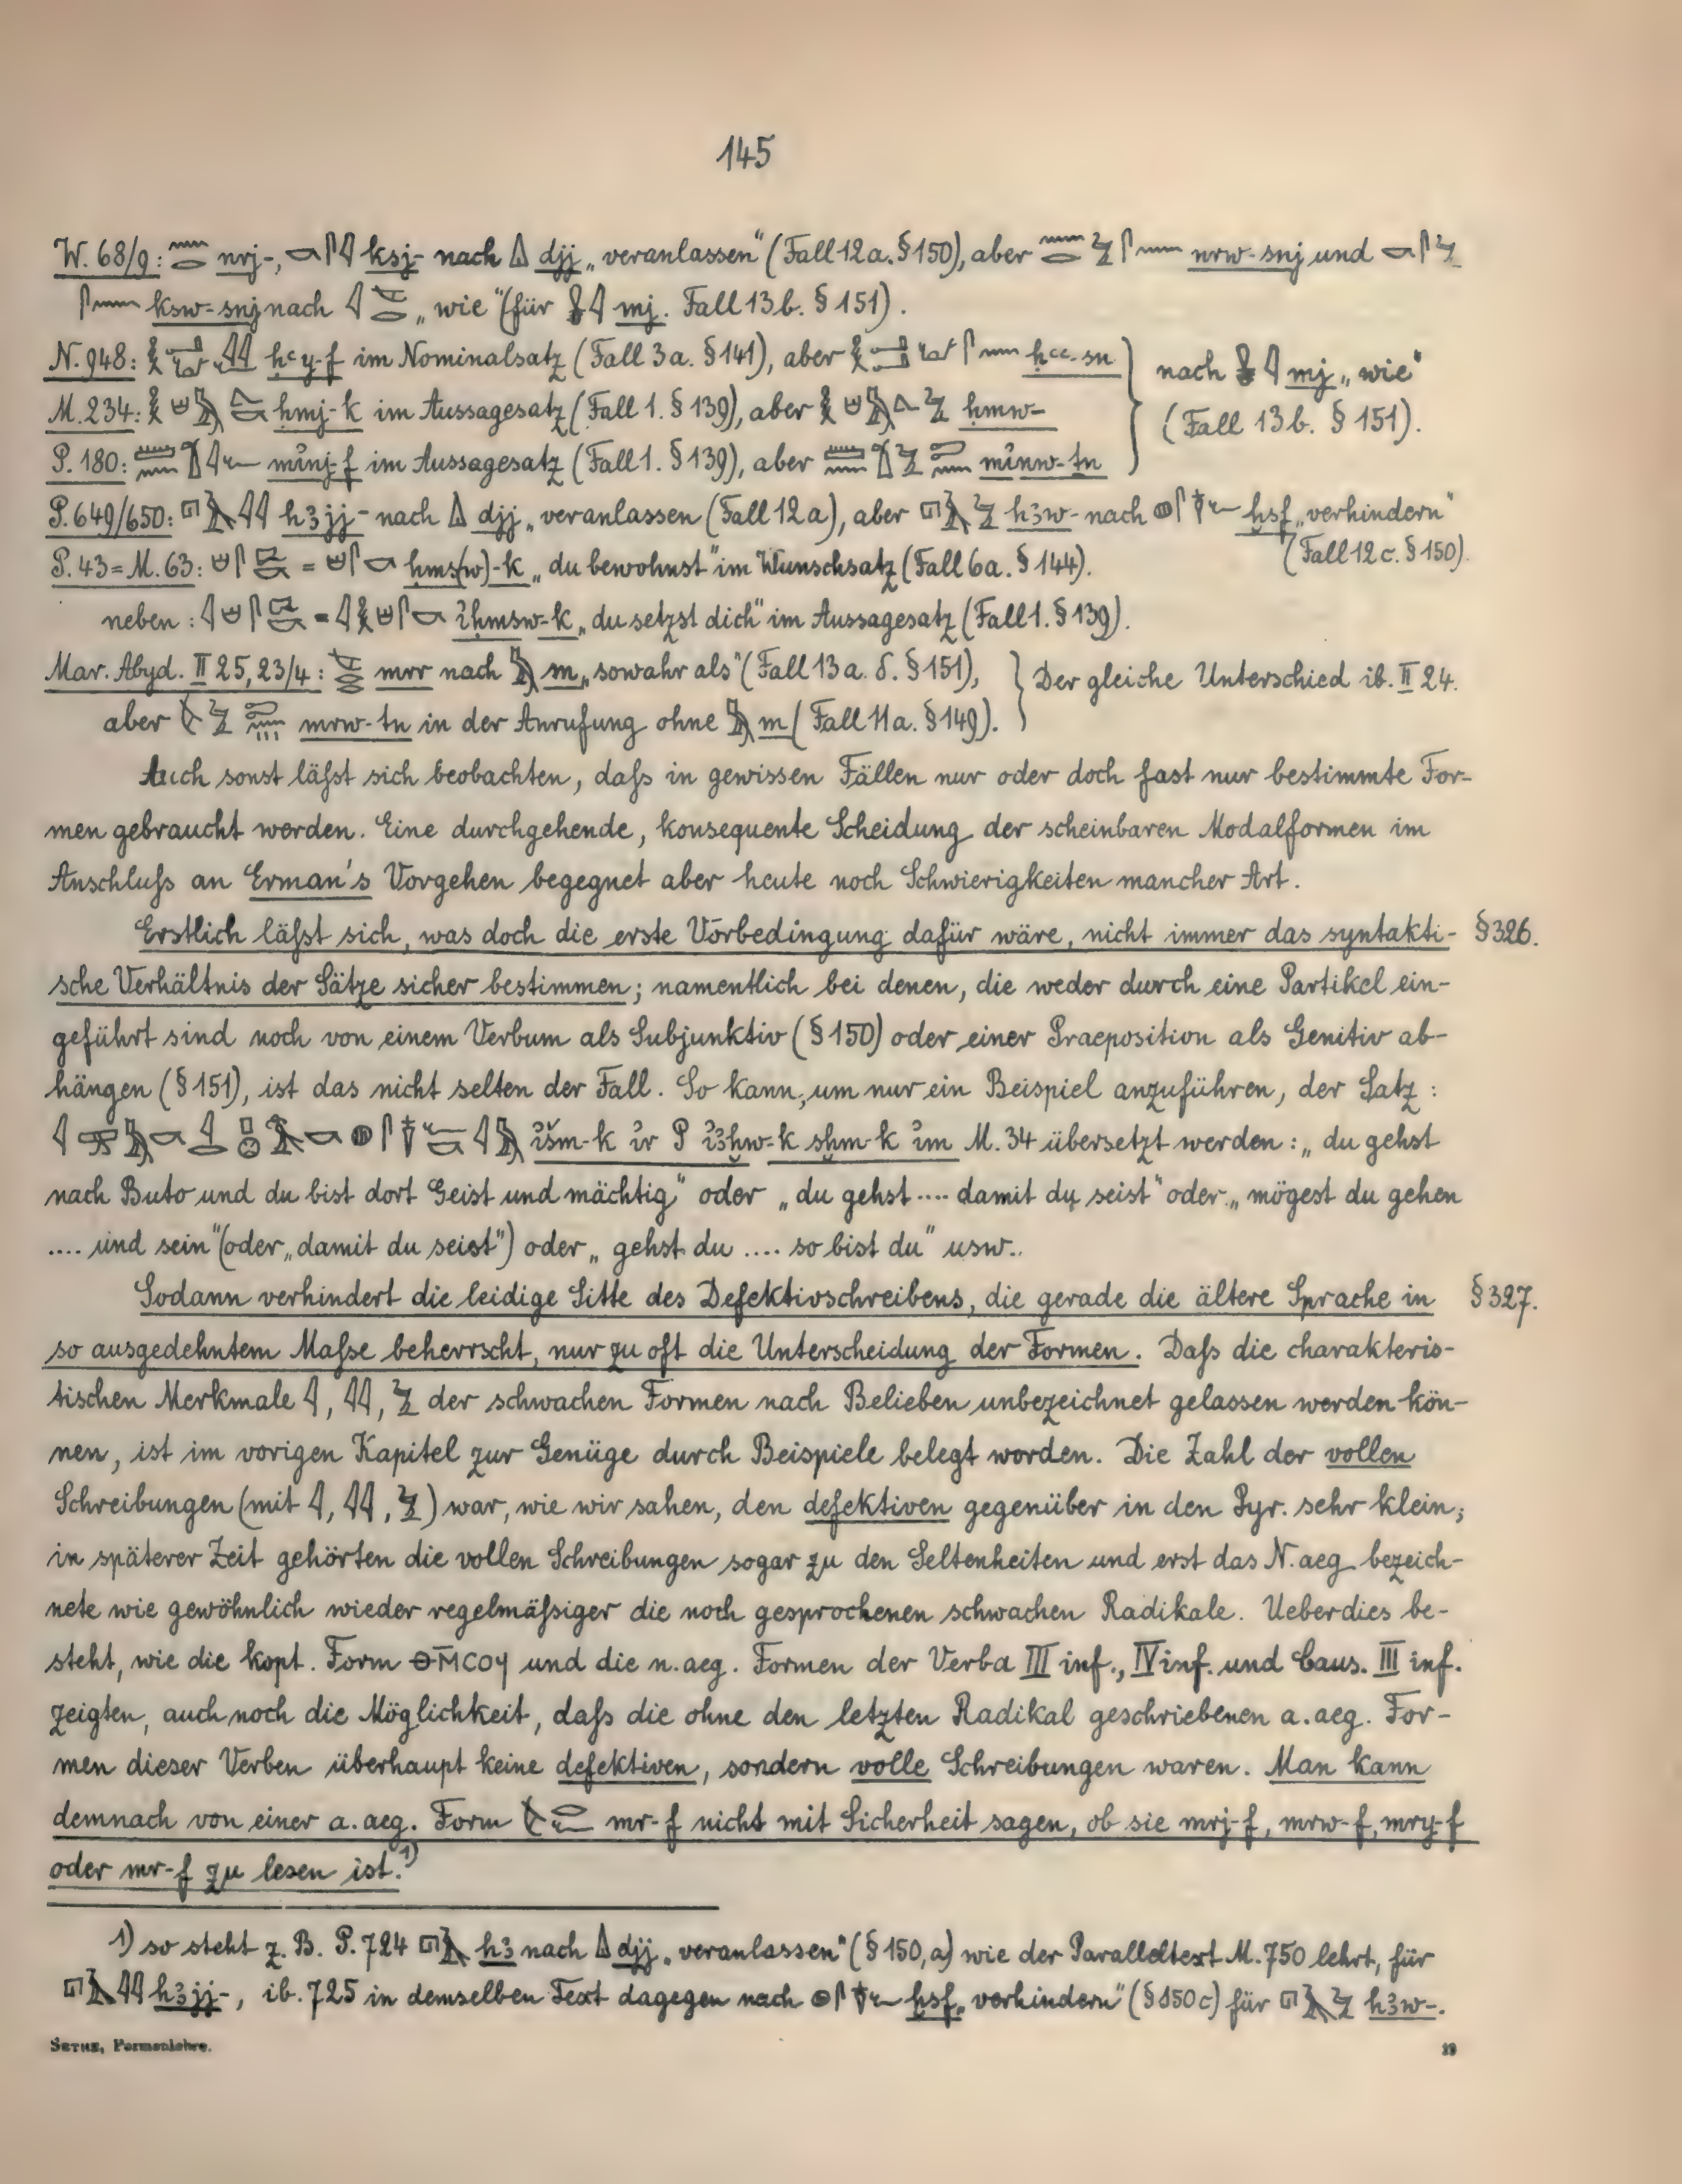 145
W. 68/9: nrj-, ksj- nach djj „veranlassen“ (Fall 12a. § 150), aber nrw-snj und
ksw-snj nach „wie“ (für mj. Fall 13b. § 151).
N. 948: ḥꜥy-f im Nominalsatz (Fall 3a. § 141), aber ḥꜥꜥ-sn
M. 234: ḥmj-k im Aussagesatz (Fall 1. § 139), aber ḥmw-
P. 180: mỉnj-f im Aussagesatz (Fall 1. § 139), aber mỉnw-ṯn
nach mj „wie“
(Fall 13b. § 151).
P. 649/650: hꜣjj- nach djj „veranlassen (Fall 12a), aber hꜣw- nach ḫsf „verhindern“
(Fall 12c. § 150).
P. 43 = M. 63: = ḥms(w)-k „du bewohnst“ im Wunschsatz (Fall 6a. § 144).
neben: = ỉḥmsw-k „du setzst dich“ im Aussagesatz (Fall 1. § 139).
Mar. Abyd. II 25, 23/4: mrr nach m „sowahr als“ (Fall 13a. δ. § 151),
aber mrw-ṯn in der Anrufung ohne m (Fall 11a. § 149).
Der gleiche Unterschied ib. II 24.
Auch sonst läſst sich beobachten, daſs in gewissen Fällen nur oder doch fast nur bestimmte For-
men gebraucht werden. Eine durchgehende, konsequente Scheidung der scheinbaren Modalformen im
Anschluſs an Erman's Vorgehen begegnet aber heute noch Schwierigkeiten mancher Art.
Erstlich läſst sich, was doch die erste Vorbedingung dafür wäre, nicht immer das syntakti- § 326.
sche Verhältnis der Sätze sicher bestimmen; namentlich bei denen, die weder durch eine Partikel ein-
geführt sind noch von einem Verbum als Subjunktiv (§ 150) oder einer Praeposition als Genitiv ab-
hängen (§ 151), ist das nicht selten der Fall. So kann, um nur ein Beispiel anzuführen, der Satz:
ỉšm-k ỉr P ỉꜣḫw-k sḫm-k ỉm M. 34 übersetzt werden: „du gehst
nach Buto und du bist dort Geist und mächtig“ oder „du gehst .... damit du seist“ oder „mögest du gehen
.... und sein“ (oder „damit du seist“) oder „gehst du .... so bist du“ usw..
Sodann verhindert die leidige Sitte des Defektivschreibens, die gerade die ältere Sprache in § 327.
so ausgedehntem Maſse beherrscht, nur zu oft die Unterscheidung der Formen. Daſs die charakteris-
tischen Merkmale 𓇋, 𓇋𓇋, 𓅱 der schwachen Formen nach Belieben unbezeichnet gelassen werden kön-
nen, ist im vorigen Kapitel zur Genüge durch Beispiele belegt worden. Die Zahl der vollen
Schreibungen (mit 𓇋, 𓇋𓇋, 𓅱) war, wie wir sahen, den defektiven gegenüber in den Pyr. sehr klein;
in späterer Zeit gehörten die vollen Schreibungen sogar zu den Seltenheiten und erst das N.aeg. bezeich-
nete wie gewöhnlich wieder regelmäſsiger die noch gesprochenen schwachen Radikale. Ueberdies be-
steht, wie die kopt. Form ⲑⲙ̄ⲥⲟϥ und die n.aeg. Formen der Verba III inf., IV inf. und Caus. III inf.
zeigten, auch noch die Möglichkeit, daſs die ohne den letzten Radikal geschriebenen a.aeg. For-
men dieser Verben überhaupt keine defektiven, sondern volle Schreibungen waren. Man kann
demnach von einer a.aeg. Form mr-f nicht mit Sicherheit sagen, ob sie mrj-f, mrw-f, mry-f
oder mr-f zu lesen ist.¹)
1) so steht z. B. P. 724 hꜣ nach djj „veranlassen“ (§ 150, a) wie der Paralleltext M. 750 lehrt, für
hꜣjj-, ib. 725 in demselben Text dagegen nach ḫsf „verhindern“ (§ 150 c) für hꜣw-.
SETHE, Formenlehre. 19